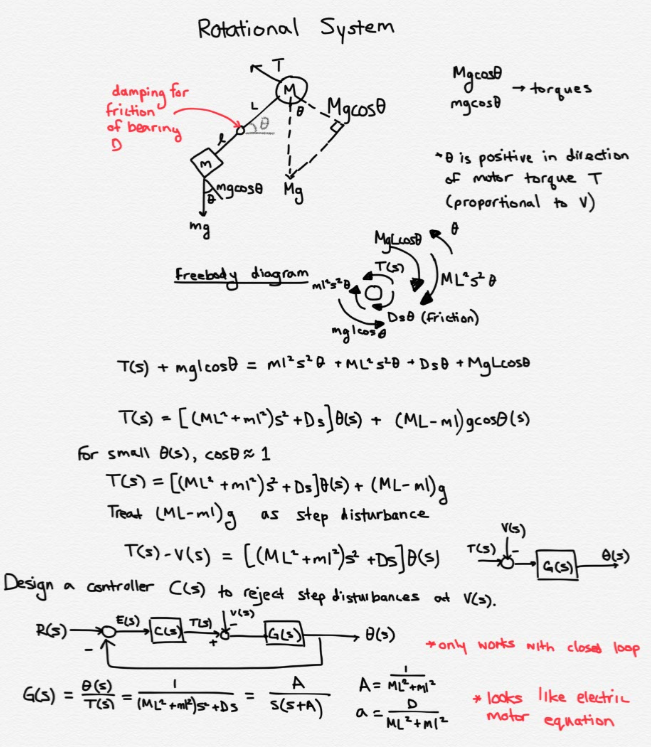 Rotational System
T
M
damping for
friction
of bearing
D
L
θ
θ
Mgcosθ
l
m
θ
mgcosθ
Mg
mg
Mgcosθ
mgcosθ
→ torques
*θ is positive in direction
of motor torque T
(proportional to V)
Freebody diagram
MgLcosθ
θ
T(s)
ml²s²θ
ML²s²θ
Dsθ (friction)
mglcosθ
T(s) + mglcosθ = ml²s²θ + ML²s²θ + Dsθ + MgLcosθ
T(s) = [(ML²+ml²)s²+Ds]θ(s) + (ML-ml)gcosθ(s)
For small θ(s), cosθ ≈ 1
T(s) = [(ML²+ml²)s²+Ds]θ(s) + (ML-ml)g
Treat (ML-ml)g as step disturbance
T(s)-V(s) = [(ML²+ml²)s²+Ds]θ(s)
V(s)
T(s)
-
G(s)
θ(s)
Design a controller C(s) to reject step disturbances at V(s).
R(s)
-
E(s)
C(s)
T(s)
+
V(s)
-
G(s)
θ(s)
*only works with closed loop
G(s) = θ(s)/T(s) = 1/((ML²+ml²)s²+Ds) = A/(s(s+A))
A = 1/(ML²+ml²)
a = D/(ML²+ml²)
*looks like electric
motor equation